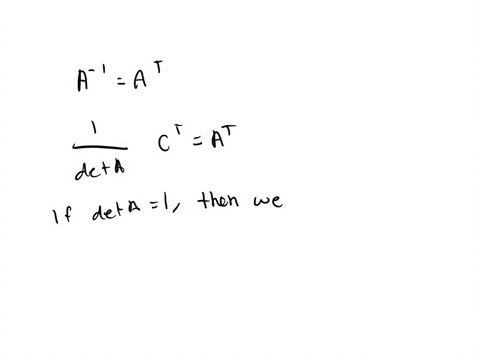 A⁻¹ = Aᵀ
1/detA Cᵀ = Aᵀ
If detA = 1, then we